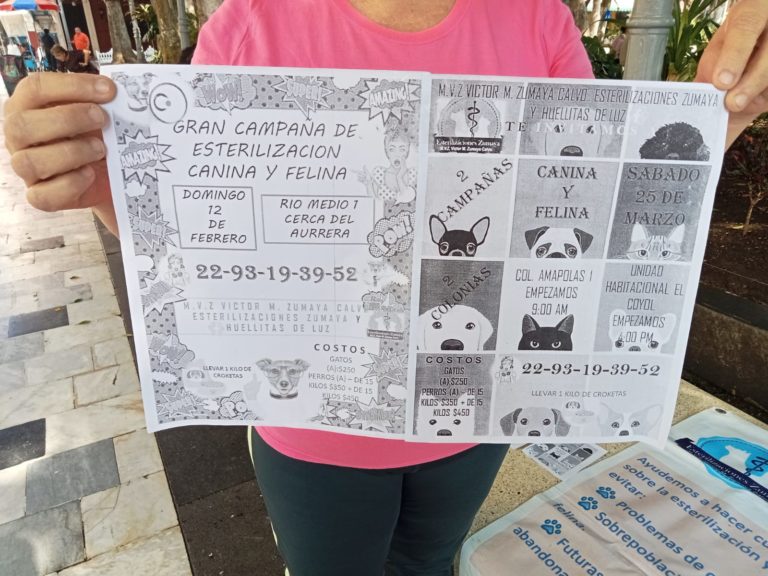 GRAN CAMPAÑA DE
ESTERILIZACION
CANINA Y FELINA
DOMINGO
12
DE
FEBRERO
RIO MEDIO 1
CERCA DEL
AURRERA
22-93-19-39-52
M.V.Z VICTOR M. ZUMAYA CALVO
ESTERILIZACIONES ZUMAYA Y
HUELLITAS DE LUZ
COSTOS
GATOS
(A)$250
PERROS (A) - DE 15
KILOS $350 + DE 15
KILOS $450
LLEVAR 1 KILO DE
CROKETAS
WOW
SUPER
AMAZING
AMAZING
M.V.Z VICTOR M. ZUMAYA CALVO. ESTERILIZACIONES ZUMAYA
Y HUELLITAS DE LUZ
TE INVITAMOS
Esterilizaciones Zumaya
M.V.Z. Victor M. Zumaya Calvo
2
CAMPAÑAS
CANINA
Y
FELINA
SABADO
25 DE
MARZO
2
COLONIAS
COL. AMAPOLAS 1
EMPEZAMOS
9:00 AM
UNIDAD
HABITACIONAL EL
COYOL
EMPEZAMOS
4:00 PM
COSTOS
GATOS
(A) $250
PERROS (A) - DE 15
KILOS $350 + DE 15
KILOS $450
22-93-19-39-52
LLEVAR 1 KILO DE CROKETAS
Esterilizaciones Zumaya
Ayudemos a hacer
sobre la esterilización y
evitar:
Problemas de
Sobrepoblac
felina.
Futuras
abandona